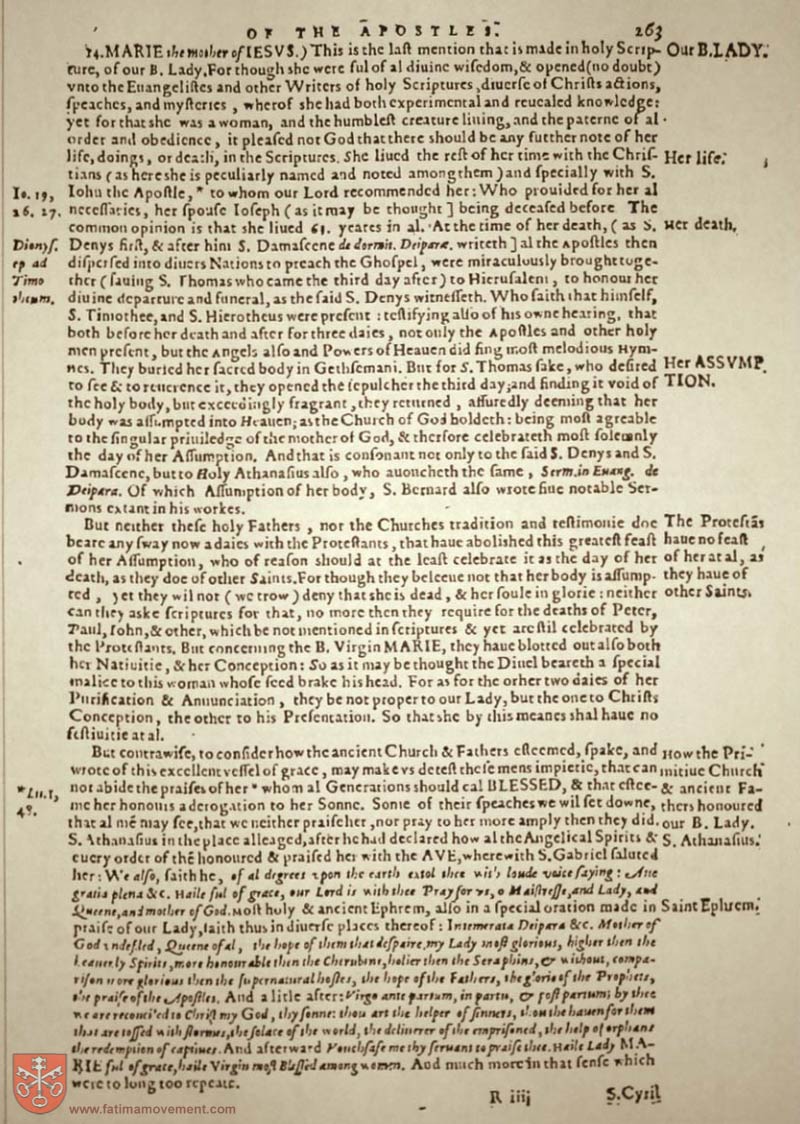 OF THE APOSTLES. 263
14. MARIE the mother of IESVS.) This is the last mention that is made in holy Scrip-
ture, of our B. Lady. For though she were ful of al diuine wisedom, & opened (no doubt)
vnto the Euangelistes and other Writers of holy Scriptures, diuerse of Christs actions,
speaches, and mysteries, wherof she had both experimental and reuealed knowledge:
yet for that she was a woman, and the humblest creature liuing, and the paterne of al
order and obedience, it pleased not God that there should be any further note of her
life, doings, or death, in the Scriptures. She liued the rest of her time with the Chris-
tians (as here she is peculiarly named and noted among them) and specially with S.
Iohn the Apostle, * to whom our Lord recommended her: Who prouided for her al
necessaries, her spouse Ioseph (as it may be thought] being deceased before The
common opinion is that she liued 63. yeares in al. At the time of her death, (as S.
Denys first, & after him S. Damascene de dormit. Deiparæ. writeth] al the Apostles then
dispersed into diuers Nations to preach the Ghospel, were miraculously brought toge-
ther (sauing S. Thomas who came the third day after) to Hierusalem, to honour her
diuine departure and funeral, as the said S. Denys witnesseth. Who saith that himself,
S. Timothee, and S. Hierotheus were present: testifying also of his owne hearing, that
both before her death and after for three daies, not only the Apostles and other holy
men present, but the Angels also and Powers of Heauen did sing most melodious Hym-
nes. They buried her sacred body in Gethsemani. But for S. Thomas sake, who desired
to see & to reuerence it, they opened the sepulcher the third day; and finding it void of
the holy body, but exceedingly fragrant, they returned, assuredly deeming that her
body was assumpted into Heauen; as the Church of God holdeth: being most agreable
to the singular priuiledge of the mother of God, & therfore celebrateth most solemnly
the day of her Assumption. And that is consonant not only to the said S. Denys and S.
Damascene, but to Holy Athanasius also, who auoucheth the same, Serm. in Euang. de
Deipara. Of which Assumption of her body, S. Bernard also wrote fiue notable Ser-
mons extant in his workes.
But neither these holy Fathers, nor the Churches tradition and testimonie doe
beare any sway now adaies with the Protestants, that haue abolished this greatest feast
of her Assumption, who of reason should at the least celebrate it as the day of her
death, as they doe of other Saints. For though they beleeue not that her body is assump-
ted, yet they wil not (we trow) deny that she is dead, & her soule in glorie: neither
can they aske scriptures for that, no more then they require for the deaths of Peter,
Paul, Iohn, & other, which be not mentioned in scriptures & yet are stil celebrated by
the Protestants. But concerning the B. Virgin MARIE, they haue blotted out also both
her Natiuitie, & her Conception: So as it may be thought the Diuel beareth a special
malice to this woman whose seed brake his head. For as for the orher two daies of her
Purification & Annunciation, they be not proper to our Lady, but the one to Christs
Conception, the other to his Presentation. So that she by this meanes shal haue no
festiuitie at al.
But contrawise, to consider how the ancient Church & Fathers esteemed, spake, and
wrote of this excellent vessel of grace, may make vs detest these mens impietie, that can
not abide the praises of her * whom al Generations should cal BLESSED, & that estee-
me her honours a derogation to her Sonne. Some of their speaches we wil set downe,
that al mē may see, that we neither praise her, nor pray to her more amply then they did.
S. Athanasius in the place alleaged, after he had declared how al the Angelical Spirits &
euery order of thē honoured & praised her with the AVE, wherewith S. Gabriel saluted
her: We also, saith he, of al degrees vpon the earth extol thee with loude voice saying: Aue
gratia plena &c. Haile ful of grace, our Lord is with thee Pray for vs, o Maistresse, and Lady, and
Queene, and mother of God. Most holy & ancient Ephrem, also in a special oration made in
praise of our Lady, saith thus in diuerse places thereof: Intemerata Deipara &c. Mother of
God vndefiled, Queene of al, the hope of them that despaire, my Lady most glorious, higher then the
heauenly Spirits, more honourable then the Cherubins, holier then the Seraphins, & without, compa-
rison more glorious then the supernatural hostes, the hope of the Fathers, the glorie of the Prophets,
the praise of the Apostles. And a litle after: Virgo ante partum, in partu, & post partum; by thee
we are reconciled to Christ my God, thy sonne: thou art the helper of sinners, thou the hauen for them
that are tossed with stormes, the solace of the world, the deliuerer of the emprisoned, the help of orphans
the redemption of captiues. And afterward Vouchsafe me thy seruant to praise thee. Haile Lady MA-
RIE ful of grace, haile Virgin most Blessed among women. And much more in that sense which
were to long too repeate.
R iiij S. Cyril
Our B. LADY.
Her life.
Her death.
Her ASSVMP
TION.
The Protestās
haue no feast
of her at al, as
they haue of
other Saints.
How the Pri-
mitiue Church
& ancient Fa-
thers honoured
our B. Lady.
S. Athanasius.
Saint Ephrem.
Io. 19,
26. 27.
Dionys.
ep ad
Timo
theum.
*Lu. 1,
48.
www.fatimamovement.com